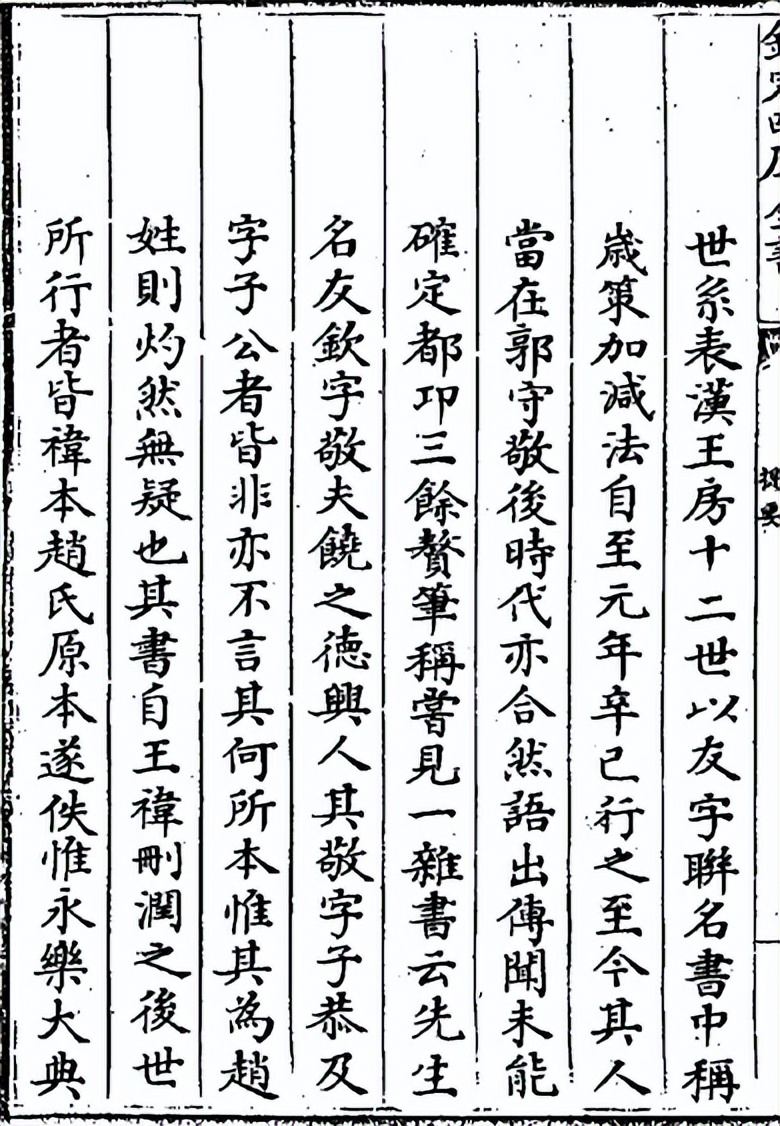 欽定四庫全書
提要
世系表漢王房十二世以友字聯名書中稱
歲策加減法自至元年辛已行之至今其人
當在郭守敬後時代亦合然語出傳聞未能
確定都卭三餘贅筆稱嘗見一雜書云先生
名友欽字敬夫饒之德興人其敬字子恭及
字子公者皆非亦不言其何所本惟其為趙
姓則灼然無疑也其書自王禕刪潤之後世
所行者皆禕本趙氏原本遂佚惟永樂大典